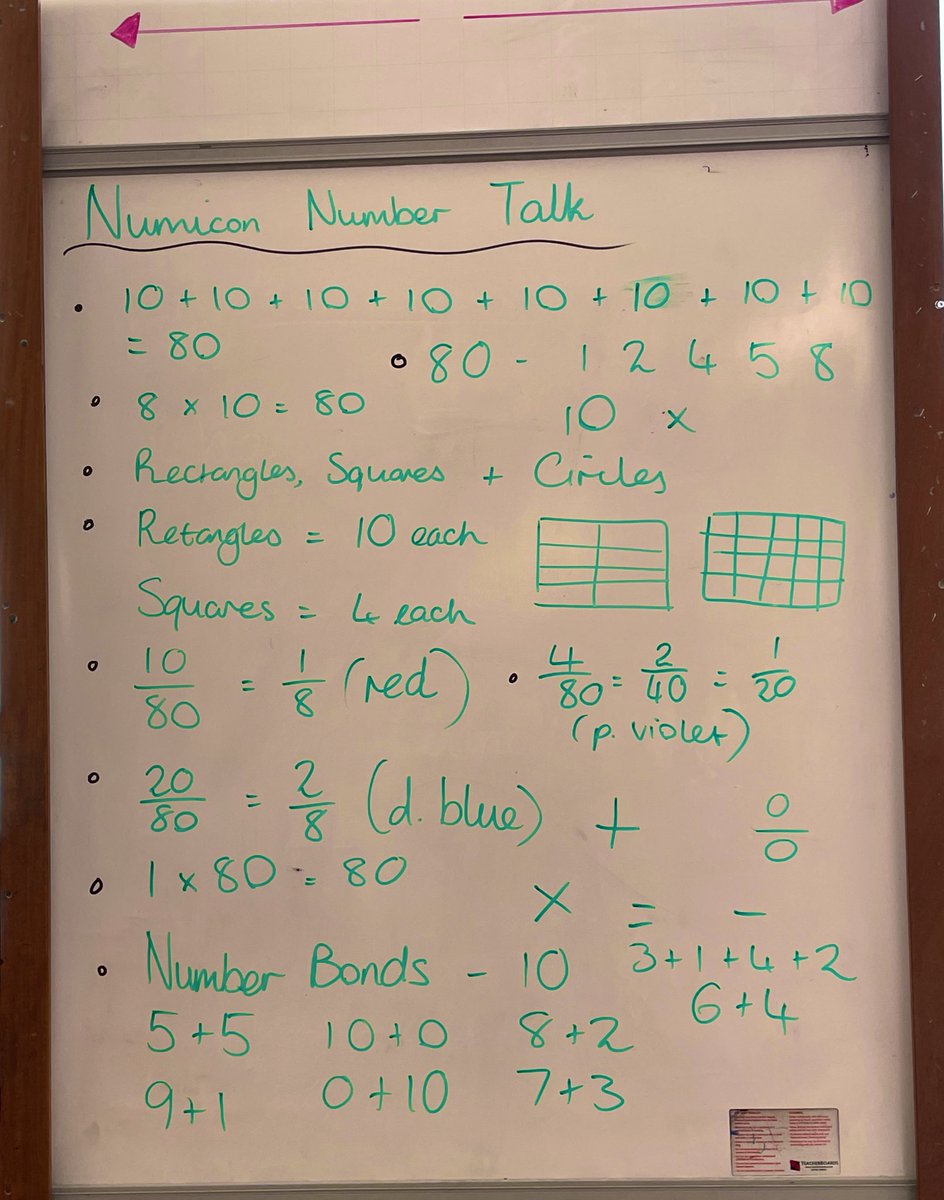 Numicon Number Talk
• 10 + 10 + 10 + 10 + 10 + 10 + 10 + 10
= 80
• 80 - 1 2 4 5 8
10 x
• 8 x 10 = 80
• Rectangles, Squares + Circles
• Retangles = 10 each
Squares = 4 each
• 10/80 = 1/8 (red)
• 4/80 = 2/40 = 1/20
(p. violet)
• 20/80 = 2/8 (d. blue)
+ 0/0
x = -
• 1 x 80 = 80
• Number Bonds - 10
3+1+4+2
6+4
5+5 10+0 8+2
9+1 0+10 7+3
TEACHERBOARDS